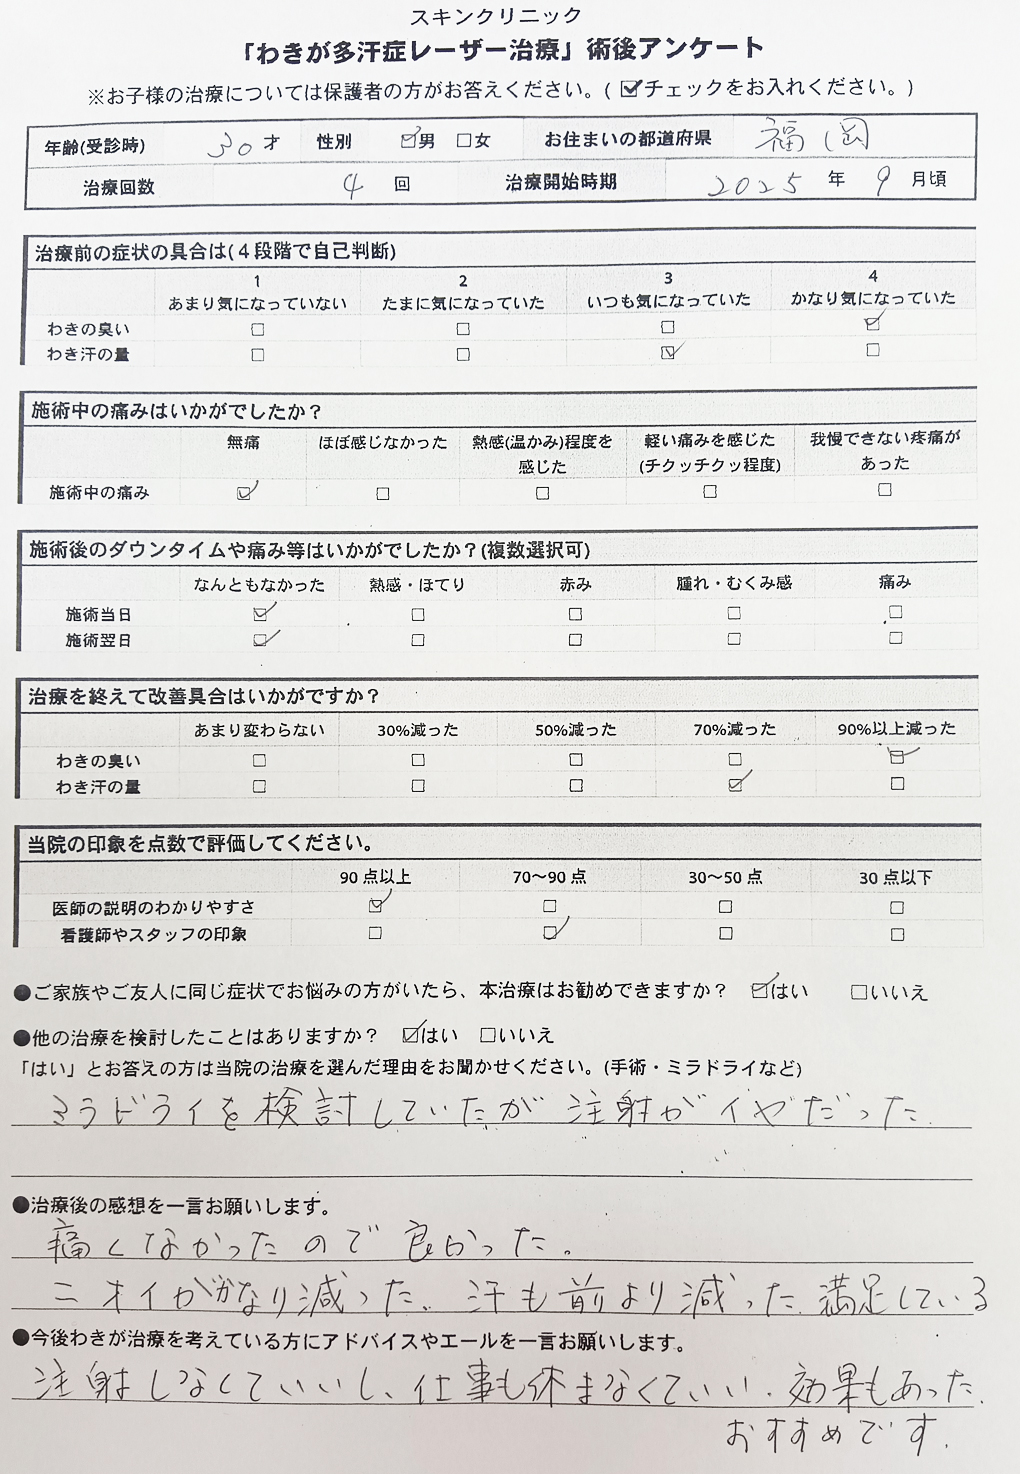 スキンクリニック
「わきが多汗症レーザー治療」術後アンケート
※お子様の治療については保護者の方がお答えください。(☑チェックをお入れください。)
年齢(受診時) 30才 性別 ☑男 □女 お住まいの都道府県 福岡
治療回数 4 回 治療開始時期 2025 年 9 月頃
治療前の症状の具合は(4段階で自己判断)
1 2 3 4
あまり気になっていない たまに気になっていた いつも気になっていた かなり気になっていた
わきの臭い □ □ □ ☑
わき汗の量 □ □ ☑ □
施術中の痛みはいかがでしたか？
無痛 ほぼ感じなかった 熱感(温かみ)程度を 軽い痛みを感じた 我慢できない疼痛が
感じた (チクッチクッ程度) あった
施術中の痛み ☑ □ □ □ □
施術後のダウンタイムや痛み等はいかがでしたか？(複数選択可)
なんともなかった 熱感・ほてり 赤み 腫れ・むくみ感 痛み
施術当日 ☑ □ □ □ □
施術翌日 ☑ □ □ □ □
治療を終えて改善具合はいかがですか？
あまり変わらない 30%減った 50%減った 70%減った 90%以上減った
わきの臭い □ □ □ □ ☑
わき汗の量 □ □ □ ☑ □
当院の印象を点数で評価してください。
90点以上 70～90点 30～50点 30点以下
医師の説明のわかりやすさ ☑ □ □ □
看護師やスタッフの印象 □ ☑ □ □
●ご家族やご友人に同じ症状でお悩みの方がいたら、本治療はお勧めできますか？ ☑はい □いいえ
●他の治療を検討したことはありますか？ ☑はい □いいえ
「はい」とお答えの方は当院の治療を選んだ理由をお聞かせください。(手術・ミラドライなど)
ミラドライを検討していたが注射がイヤだった.
●治療後の感想を一言お願いします。
痛くなかったので良かった。
ニオイがかなり減った. 汗も前より減った. 満足している
●今後わきが治療を考えている方にアドバイスやエールを一言お願いします。
注射しなくていいし、仕事も休まなくていい. 効果もあった.
おすすめです.